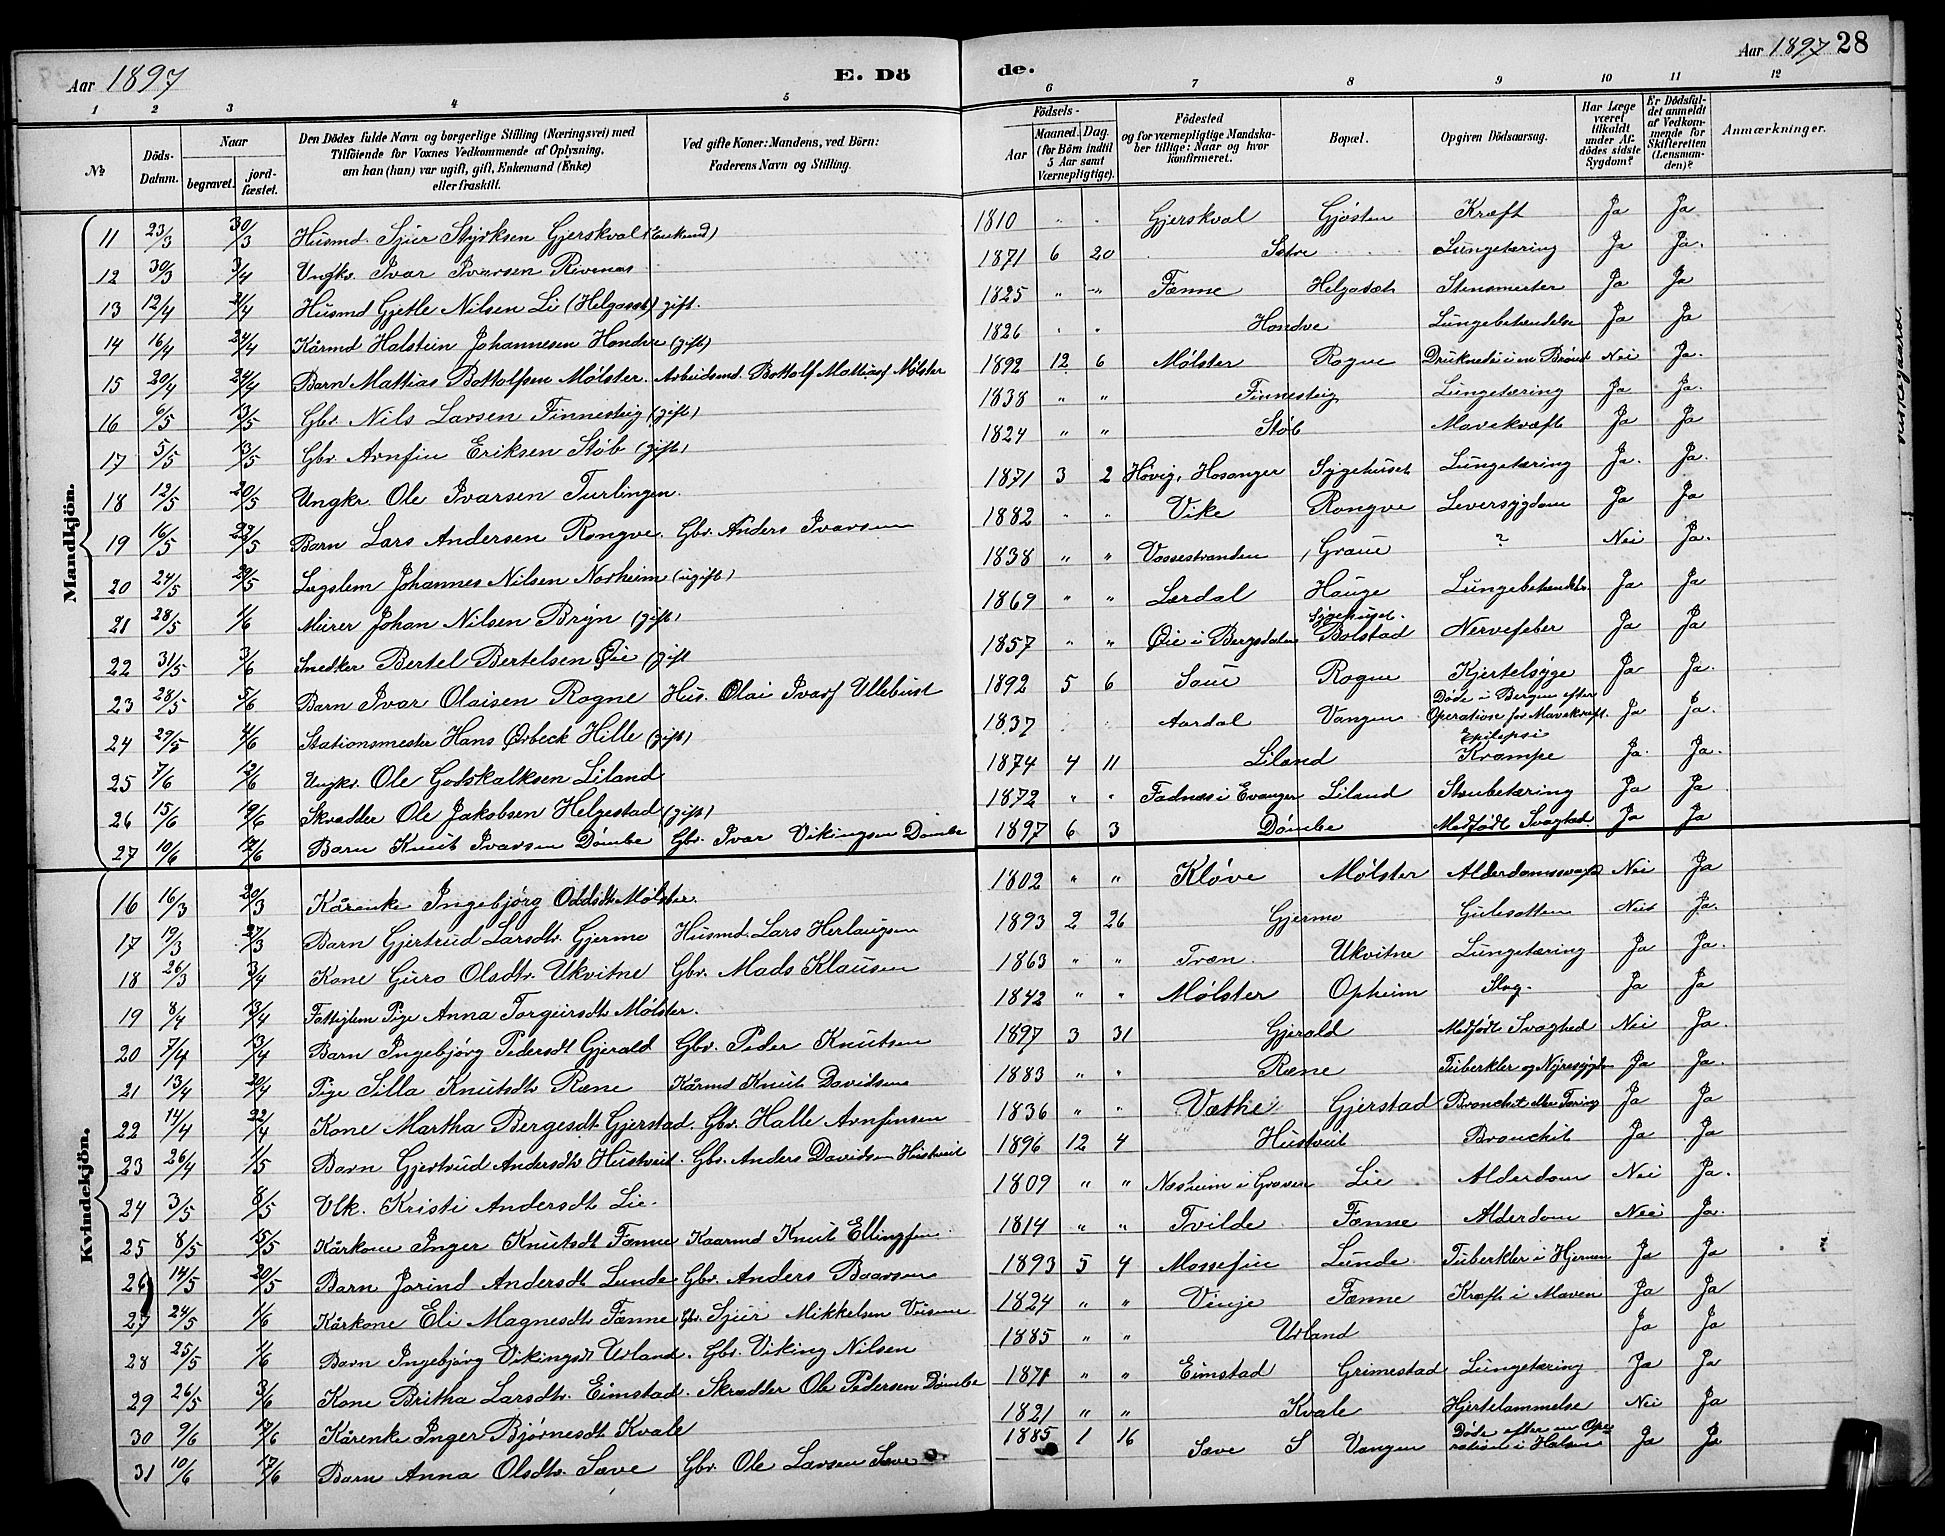 Aar 1897
E. Dö
de.
Aar 1897 28
1 2 3 4 5 6 7 8 9 10 11 12
№ Döds-Datum. Naar begravet. jord-fæstet. Den Dödes fulde Navn og borgerlige Stilling (Næringsvei) med Tilföiende for Voxnes Vedkommende af Oplysning, om han (hun) var ugift, gift, Enkemand (Enke) eller fraskilt. Ved gifte Koner: Mandens, ved Börn: Faderens Navn og Stilling. Födsels- Aar Maaned. Dag. (for Börn indtil 5 Aar samt Værnepligtige). Födested og for værnepligtige Mandskaber tillige: Naar og hvor konfirmeret. Bopæl. Opgiven Dödsaarsag. Har Læge været tilkaldt under Afdödes sidste Sygdom? Er Dödsfaldet anmeldt af Vedkommende for Skifteretten (Lensmanden)? Anmærkninger.
Mandkjön.
11 23/3 30/3 Husmd. Sjur Styrksen Gjerskval (Enkemd) 1810 " " Gjerskval Gjøsten Kræft Ja Ja
12 30/3 3/4 Ungkr. Ivar Ivarsen Rivenæs 1871 6 20 Sætre Lungetæring Ja Ja.
13 12/4 21/4 Husmd Gjetle Nilsen Li (Helgasæt) gift. 1825 " " Fænne Helgasæt Stensmerter Ja Ja
14 16/4 24/4 Kårmd Halstein Johannesen Hondve (gift) 1826 " " Hondve Lungebetændelse Ja Ja
15 20/4 24/4 Barn Mattias Bottolfsen Mølster. Arbeidsmd. Bottolf Mattiasf Mølster 1892 12 6 Mølster Rogne Druknet i en Brønd Nei Ja.
16 6/5 13/5 Gbr. Nils Larsen Finnesteig (gift) 1838 " " Finnesteig Lungetæring Ja Ja.
17 5/5 13/5 Gbr. Arnfin Eriksen Støb (gift) 1824 " " Støb Mavekræft Ja Ja
18 12/5 20/5 Ungkr. Ole Ivarsen Turlingen. 1871 3 2 Høvig, Hosanger Sygehuset Lungetæring Ja. Ja.
19 16/5 22/5 Barn Lars Andersen Rongve. Gbr. Anders Ivarsen 1882 " " Vike Rongve Leversygdom Ja Ja
20 24/5 29/5 Lægslem Johannes Nilsen Norheim (ugift) 1838 " " Vossestranden Graue ? Nei Ja.
21 28/5 1/6 Murer Johan Nilsen Bryn (gift) 1869 " " Lærdal Hauge Lungebetændelse Ja Ja
22 31/5 3/6 Snedker Bertel Bertelsen Øie (gift 1857 " " Øie i Bergsdalen Sygehuset. Bolstad Nervefeber Ja Ja
23 28/5 5/6 Barn Ivar Olaisen Rogne Hus. Olai Ivarf Ullebust 1892 5 6 Saue Rogne Kjertelsyge Ja Ja.
24 29/5 4/6 Stationsmester Hans Ørbeck Hille (gift) 1837 Aardal Vangen Døde i Bergen efter Operation for Mavekræft. Ja Ja.
25 7/6 12/6 Ungkr. Ole Godskalksen Liland 1874 4 11 Liland Epilepsi Krampe Ja Ja.
26 15/6 19/6 Skrædder Ole Jakobsen Helgestad (gift) 1872 " " Fadnæs i Evanger Liland Strubetæring Ja Ja
27 10/6 19/6 Barn Knut Ivarsen Dømbe Gbr. Ivar Vikingsen Dømbe 1897 6 3 Dømbe Medfødt Svaghed. Ja Ja
Kvindekjön.
16 16/3 20/3 Kårenke Ingebjørg Oddsdt. Mølster. 1802 " " Kløve Mølster Alderdomssvagh. Nei Ja
17 19/3 27/3 Barn Gjertrud Larsdtr. Gjermo Husmd. Lars Herlaugsen 1893 2 26 Gjermo Gulesotten Nei Ja.
18 26/3 3/4 Kone Guro Olsdtr. Ukvitne Gbr. Mads Klausen 1863 " " Træn. Ukvitne Lungetæring Ja Ja.
19 8/4 13/4 Fattiglem Pige Anna Torgeirsdt. Mølster. 1842 " " Mølster Opheim Slag. Ja Ja
20 7/4 13/4 Barn Ingebjørg Pedersdt Gjerald Gbr. Peder Knutsen 1897 3 31 Gjerald Medfødt Svaghed Nei Ja.
21 13/4 20/4 Pige Silla Knutsdtr Rene Kårmd Knut Davidsen 1883 " " Rene Tuberkler og Nyresygdom Ja Ja.
22 14/4 22/4 Kone Martha Bergesdt. Gjerstad. Gbr. Halle Arnfinsen 1836 " " Væthe Gjerstad Bronchit eller Tæring Ja Ja
23 26/4 1/5 Barn Gjertrud Andersdtr Hustveit. Gbr. Anders Davidsen Hustveit 1896 12 4 Hustveit Bronchit Ja Ja
24 3/5 8/5 Vlk. Kristi Andersdt Lie. 1809 " " Næsheim i Graven Lie Alderdom Nei Ja.
25 8/5 15/5 Kårkone Inger Knutsdt Fænne Kaarmd Knut Ellingsen 1814 " " Tvilde Fænne Alderdom Nei Ja.
26 14/5 20/5 Barn Jorind Andersdt Lunde Gbr. Anders Baarsen 1893 5 4 Mossefin Lunde Tuberkler i Hjernen Ja Ja
27 24/5 1/6 Kårkone Eli Magnesdt Fænne Gbr. Sjur Mikkelsen 1824 " " Vinje Fænne Kræft i Maven Ja Ja
28 25/5 1/6 Barn Ingebjørg Vikingsdt Urland. Gbr. Viking Nilsen 1885 " " Urland Ja Ja
29 26/5 3/6 Kone Britha Larsdtr. Eimstad. Skrædder Ole Pedersen Dømbe 1871 " " Eimstad Grimestad Lungetæring Ja Ja
30 9/6 17/6 Kårenke Inger Bjørnesdt Kvale 1821 " " Kvale Hjertelammelse Nei Ja
31 10/6 17/6 Barn Anna Olsdtr. Sæve Gbr. Ole Larsen Sæve 1885 1 16 Sæve S Vangen Døde efter en Operation i Halsen Ja Ja